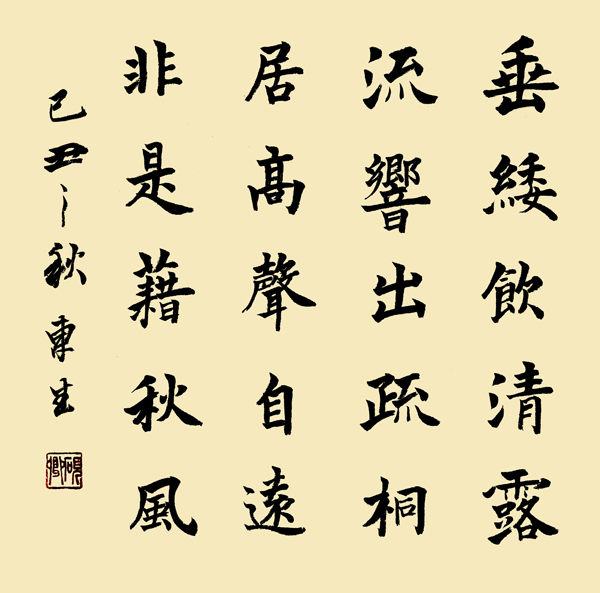 垂緌飲清露
流響出疏桐
居高聲自遠
非是藉秋風
己丑之秋 生